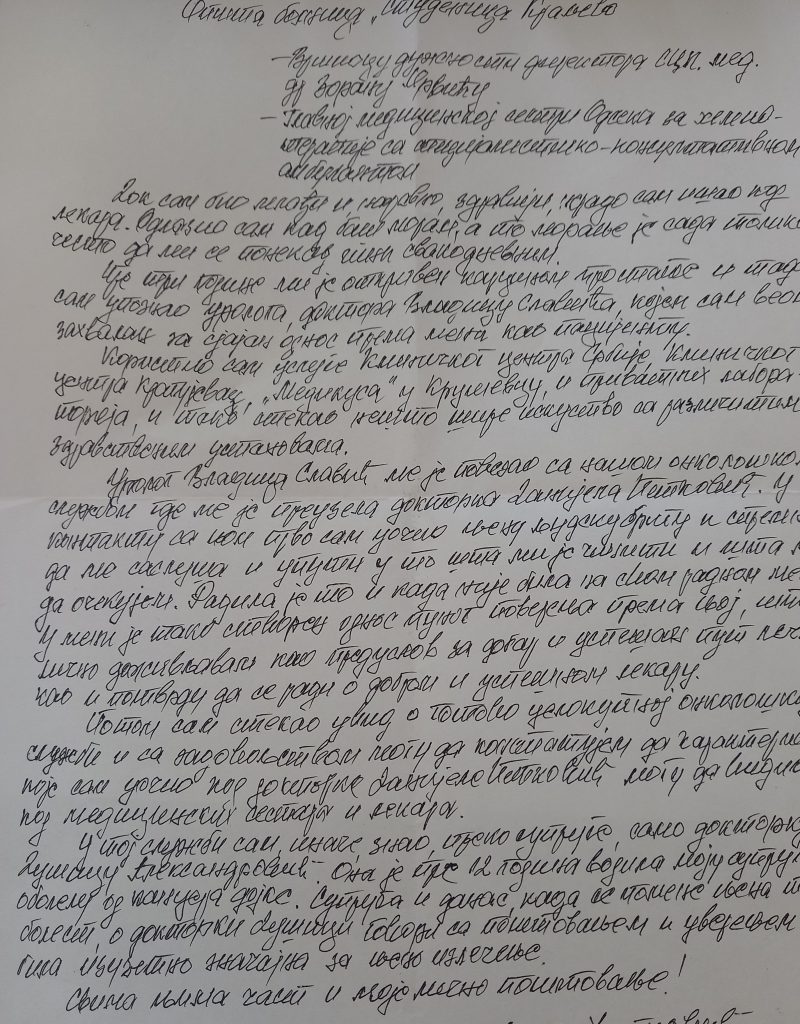 Општа болница „Студеница" Краљево
– Вршиоцу дужности директора сци. мед.
др Зорану
– Главној медицинској сестри Одсека за хемио-
терапије са специјалистичко-консултативном
амбулантом
Док сам био млађи и, наравно, здравији, ретко сам ишао код
лекара. Одлазио сам кад баш морам, а то морање је сада толико
често да ми се понекад чини свакодневним.
Пре три године ми је откривен карцином простате и тада
сам упознао уролога, доктора Владицу Славића, којем сам веома
захвалан за сјајан однос према мени као пацијенту.
Користио сам услуге Клиничког центра Србије, Клиничког
центра Крагујевац, „Медикуса" у Крушевцу, и приватних лабора-
торија, и тако стекао нешто шире искуство са различитим
здравственим установама.
Уролог Владица Славић ме је повезао са нашом онколошком
службом где ме је преузела докторка Данијела Петковић. У
контакту са њом прво сам уочио њену људску бригу и
да ме саслуша и упути у то шта ми је чинити и шта
да очекујем. Радила је то и када није била на свом радном
У мени је тако створен однос пуног поверења према њој,
лично доживљавам као предуслов за добар и успешан пут
као и потврду да се ради о добром и успешном лекару.
Потом сам стекао увид о готово целокупној онколошкој
служби и са задовољством могу да констатујем да
које сам уочио код докторке Данијеле Петковић могу да видим
код медицинских сестара и лекара.
У тој служби сам, иначе, знао, преко супруге, само докторку
Душицу Александровић. Она је пре 12 година водила моју супругу
оболелу од канцера дојке. Супруга и данас, када се помене њена
болест, о докторки Душици говори са поштовањем и уверењем
била изузетно значајна за њено излечење.
Свима њима част и моје лично поштовање!